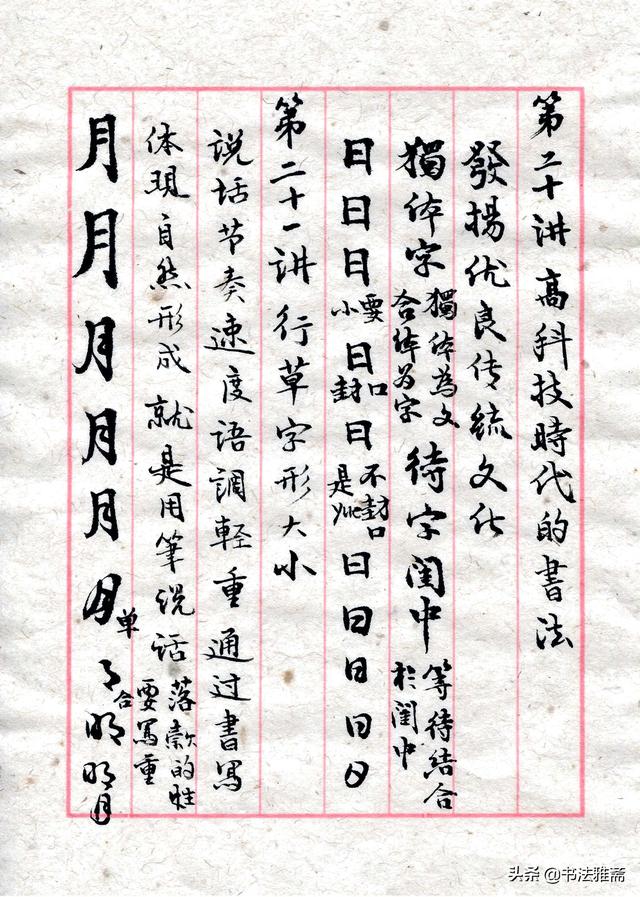 第二十讲高科技時代的書法
發揚优良传统文化
獨体字
獨体為文
合体为字
待字闺中
等待结合
於闺中
日日日
要小
日
口封
日
不封口
是yue
日日日日日
第二十一讲行草字形大小
说话节奏速度语調輕重通过書寫
体現自然形成就是用筆说话
落款的姓
要寫重
月月月月月月
单
合
明明月
头条 @书法雅斋